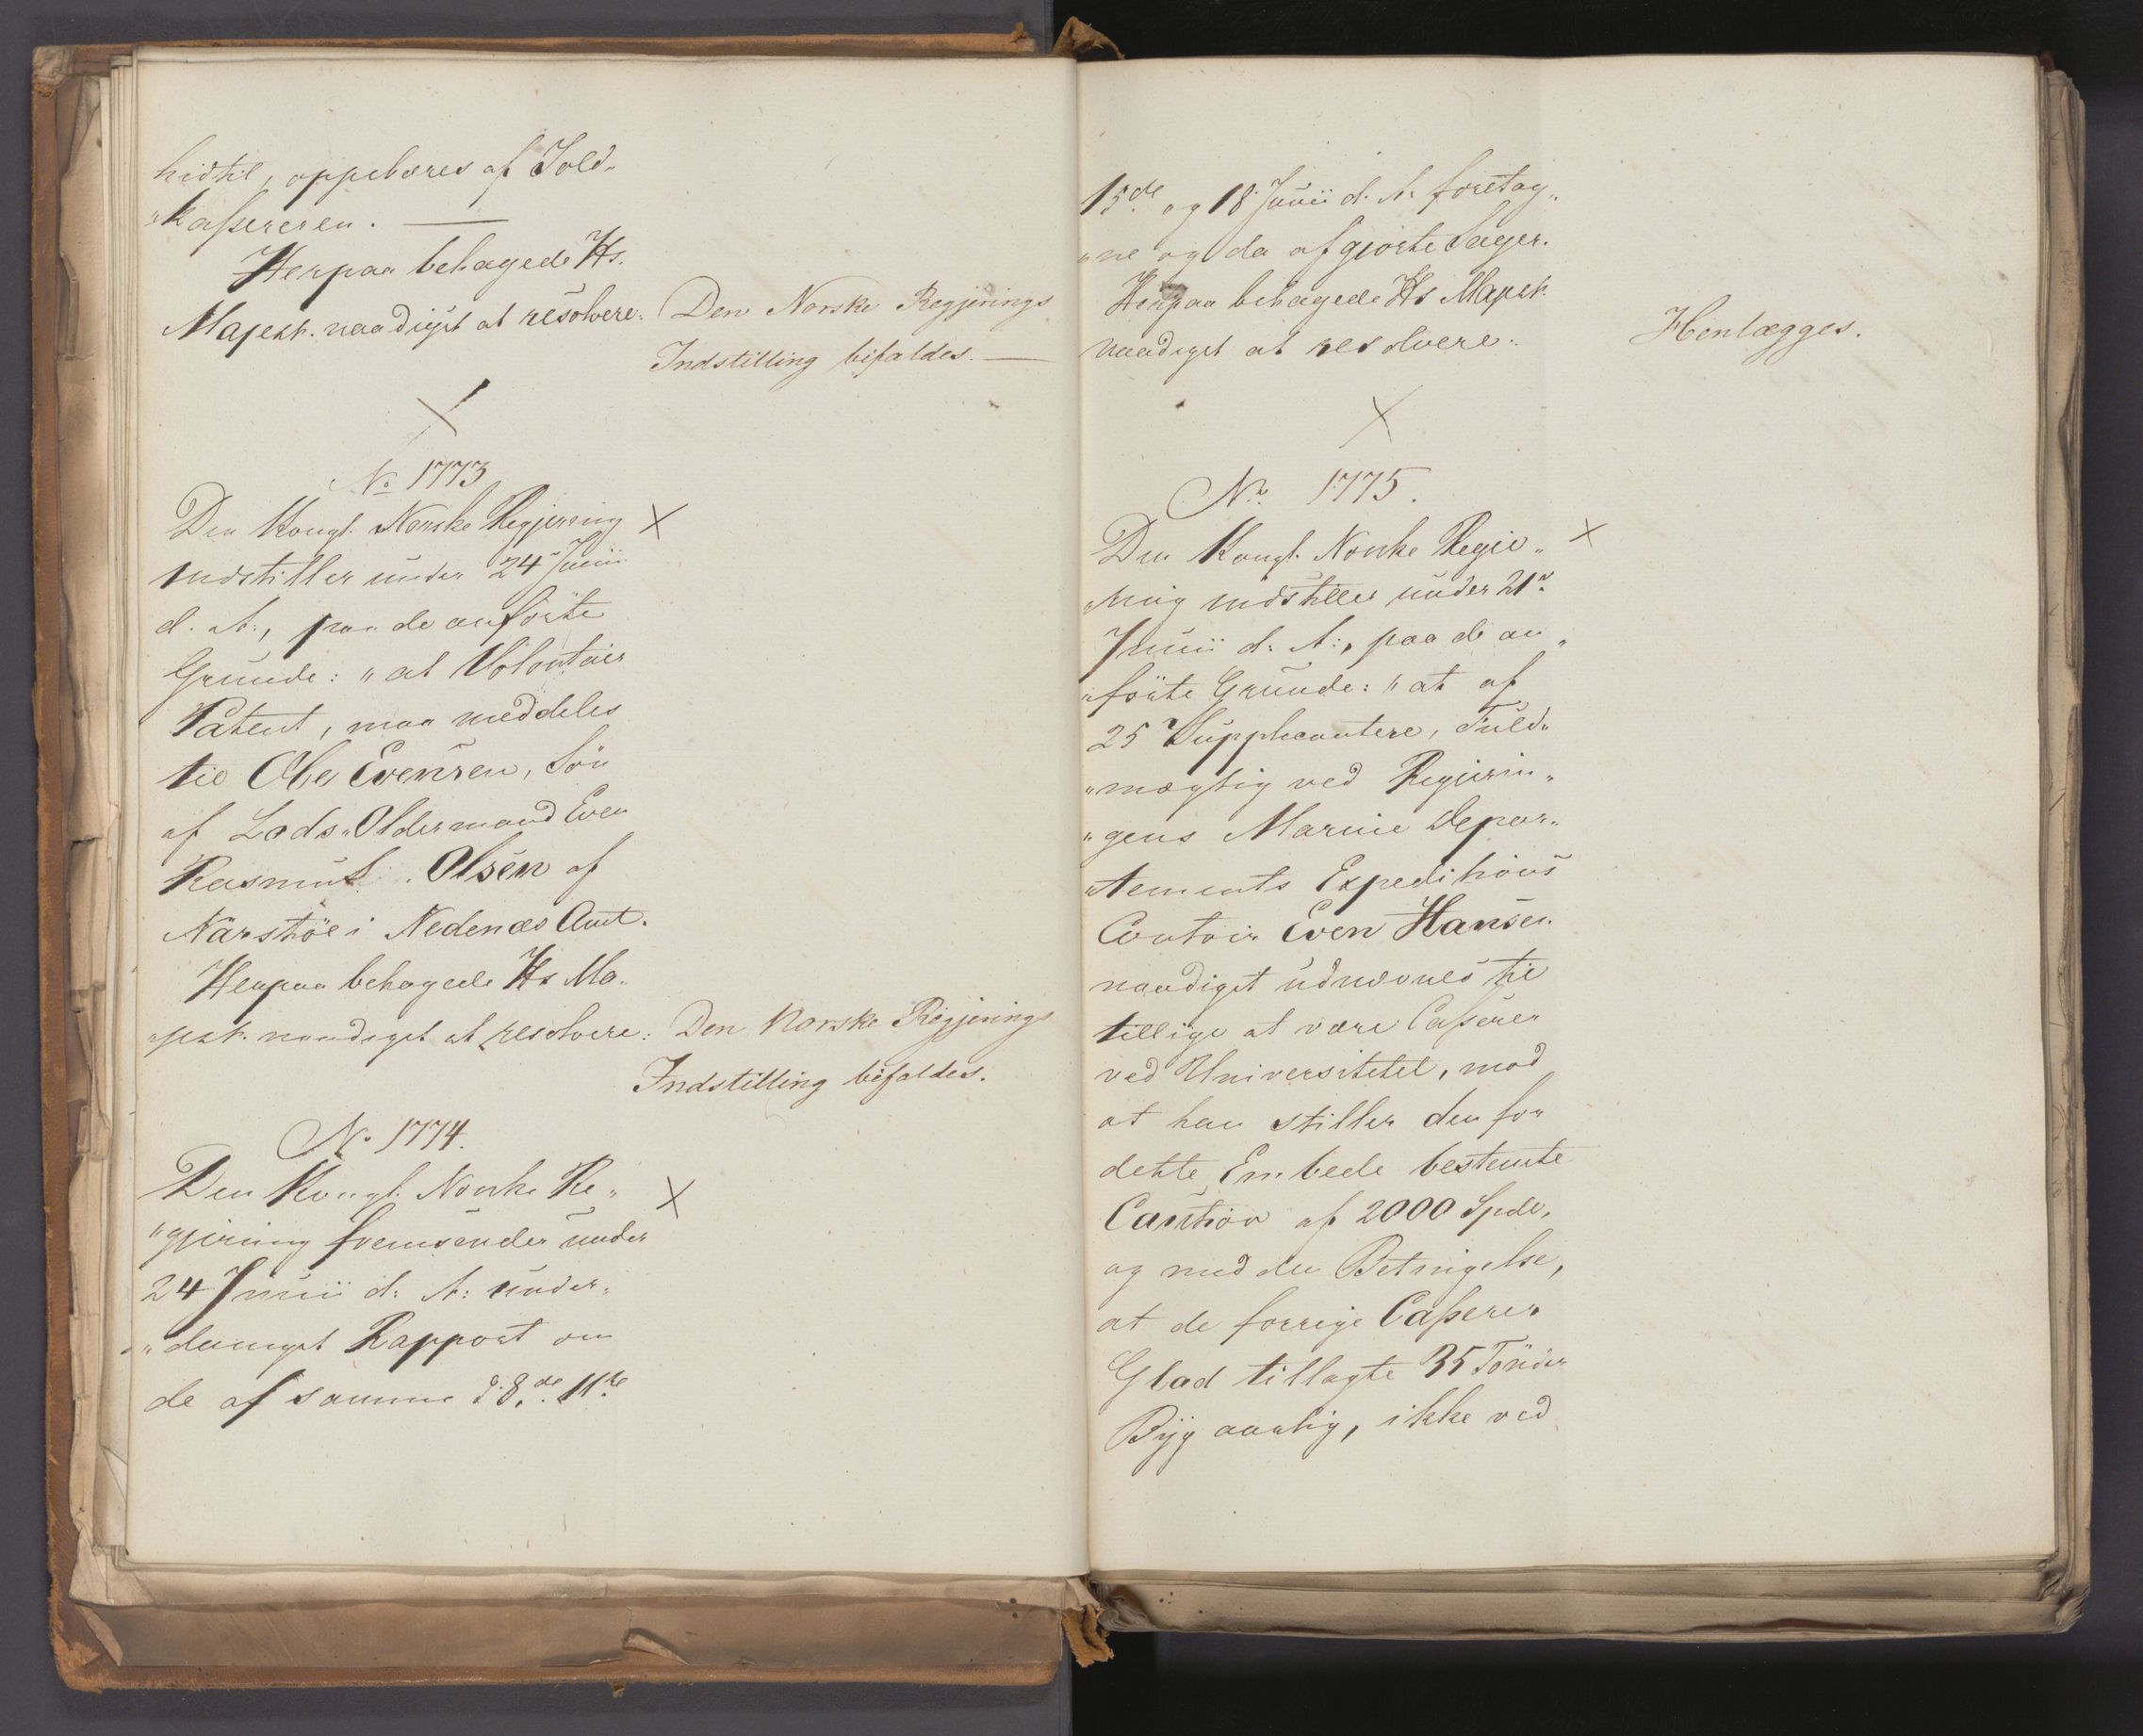 hidtil, oppebæres af Told„
„kasſereren. —
Herpaa behagede Hs.
Majest. naadigst at resolvere: Den Norske Regjerings
Indstilling bifaldes. —
No 1773
Den Kongl. Norske Regjering
indstiller under 24 Junii
d. A:, paa de anförte
Grunde: „at Volontair
Patent, maa meddeles
til Ole Evensen, Sön
af Lods„Oldermand Even
Rasmus Olsen af
Närstöe i Nedenæs Amt.
Herpaa behagede Hs Ma„
„jest. naadigst at resolvere: Den Norske Regjerings
Indstilling bifaldes.
No 1774.
Den Kongl. Norske Re„
„gjering fremsender under
24 Junii d: A: under„
„danigst Rapport om
de af samme d. 8de 11te
15de og 18 Junii d. A. foretag„
„ne og da afgjorte Sager.
Herpaa behagede Hs Majest.
naadigst at resolvere:
Henlægges.
No 1775.
Den Kongl. Norske Regie„
„ring indstiller under 21n
Junii d: A:, paa de an„
„förte Grunde: „at af
25 Supplicantere, Fuld„
„mægtig ved Regjerin„
„gens Marine Depar„
„tements Expeditions
Contoir Even Hansen
naadigst udnævnes til
tillige at være Casſerer
ved Universitetet, mod
at han stiller den for
dette Embede bestemte
Caution af 2000 Spdl,
og med den Betingelse,
at de forrige Casſerer
Glad tillagte 35 Tönder
Byg aarlig, ikke ved